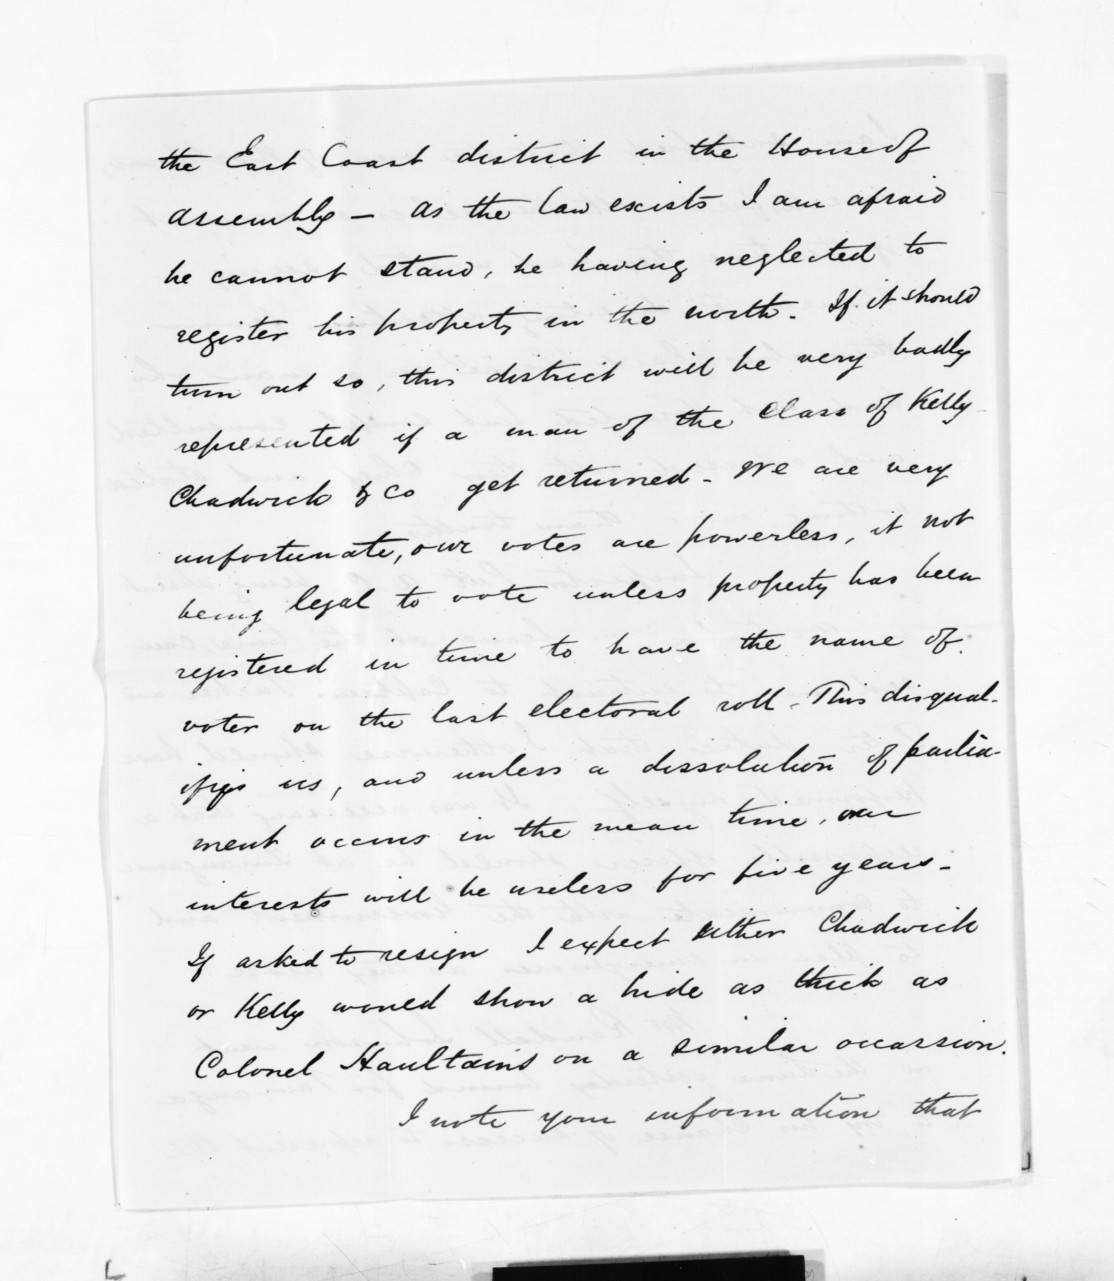 the East Coast district in the House of
assembly - as the law exists I am afraid
he cannot stand, he having neglected to
register his property in the north. If it should
turn out so, this district will be very badly
represented if a man of the Class of Kelly
Chadwick & Co get returned - We are very
unfortunate, our votes are powerless, it not
being legal to vote unless property has been
registered in time to have the name of
voter on the last electoral roll - This disqual-
ifys us, and unless a dissolution of parlia-
ment occurs in the mean time, our
interests will be useless for five years -
If asked to resign I expect either Chadwick
or Kelly would show a hide as thick as
Colonel Haultain's on a similar occassion.
I note your information that